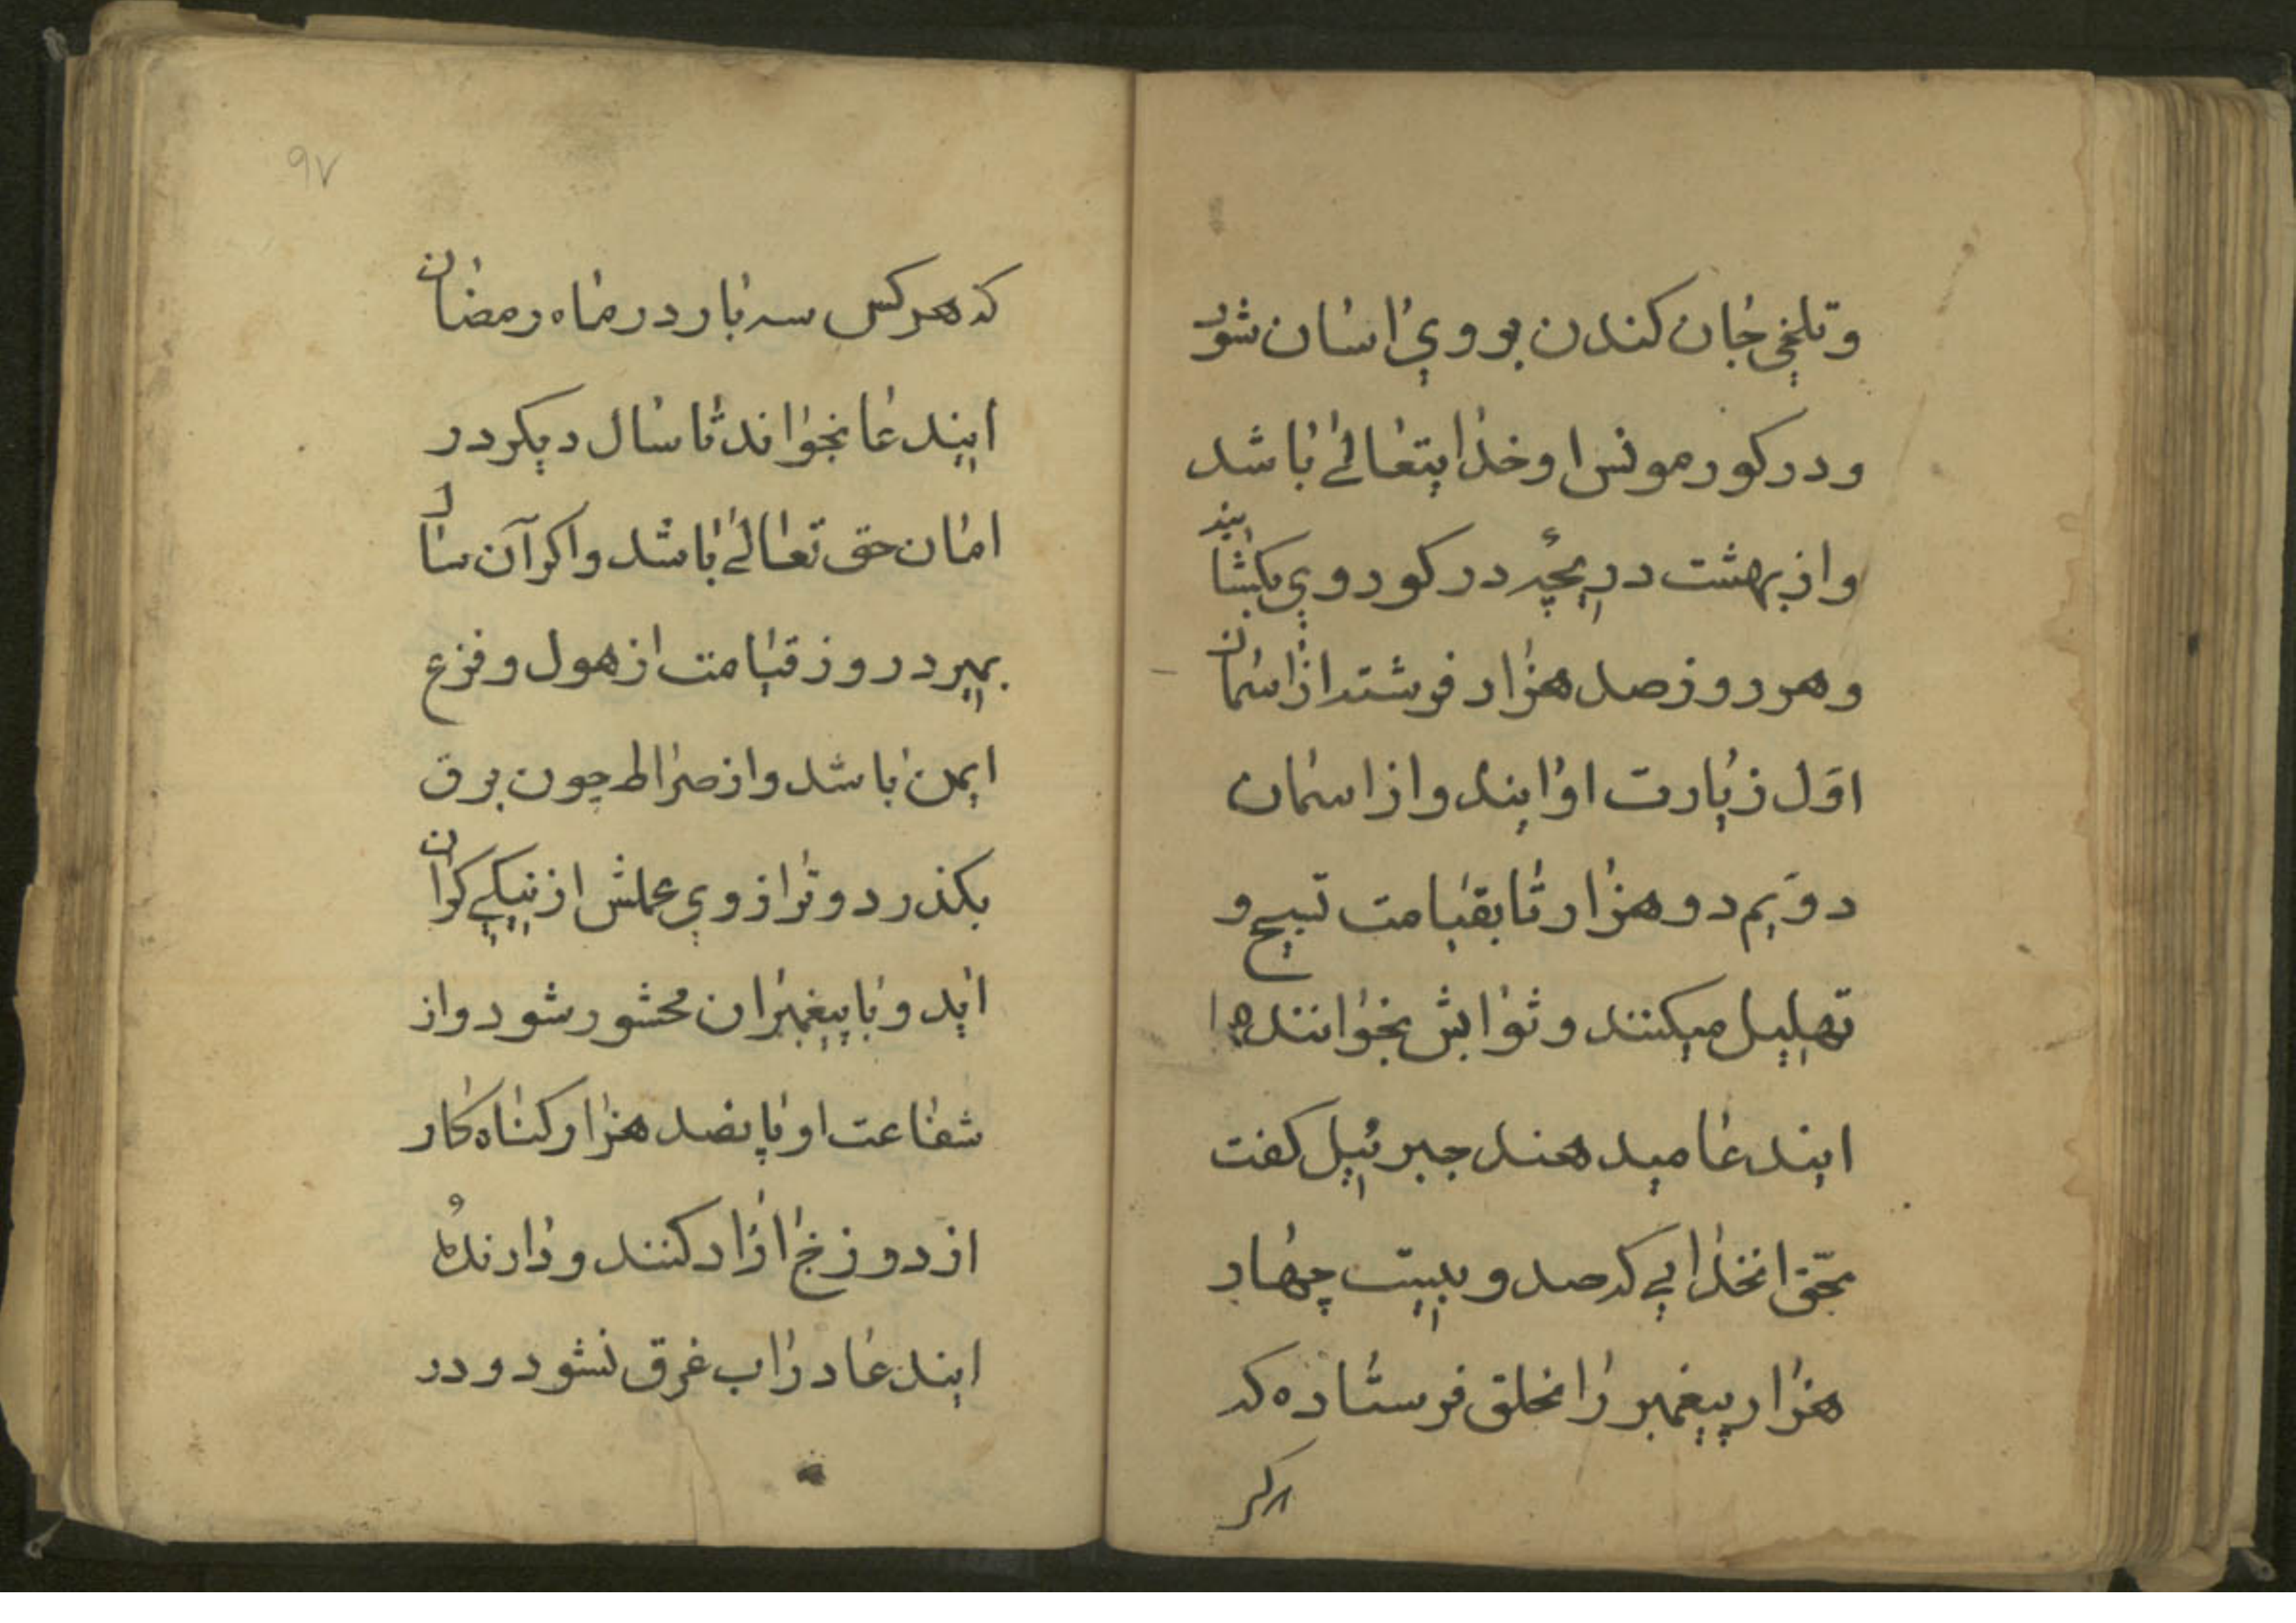 وتلخی جان کندن بر وی اسان شود
ودر کور مونس او خدایتعالی باشد
واز بهشت دریچهٔ در کور وی بکشایند
وهر روز صد هزار فرشته از اسمان
اوّل زیارت او ایند واز اسمان
دوّیم دو هزار تا بقیامت تسبیح و
تهلیل میکنند و ثوابش بخوانندهٔ
ایندعا میدهند جبرئیل کفت
بحق انخدایی که صد و بیست چهار
هزار پیغمبر را بخلق فرستاده که
هر کر
۹۷
که هر کس سه بار در ماه رمضان
ایندعا بخواند تا سال دیکر در
امان حق تعالی باشد واکر آن سال
بمیرد روز قیامت از هول و فزع
ایمن باشد واز صراط چون برق
بکذرد و ترازوی عملش از نیکی کران
اید و با پیغمبران محشور شود واز
شفاعت او پانصد هزار کناه کار
از دوزخ ازاد کنند و دارندهٔ
ایندعا در اب غرق نشود و در